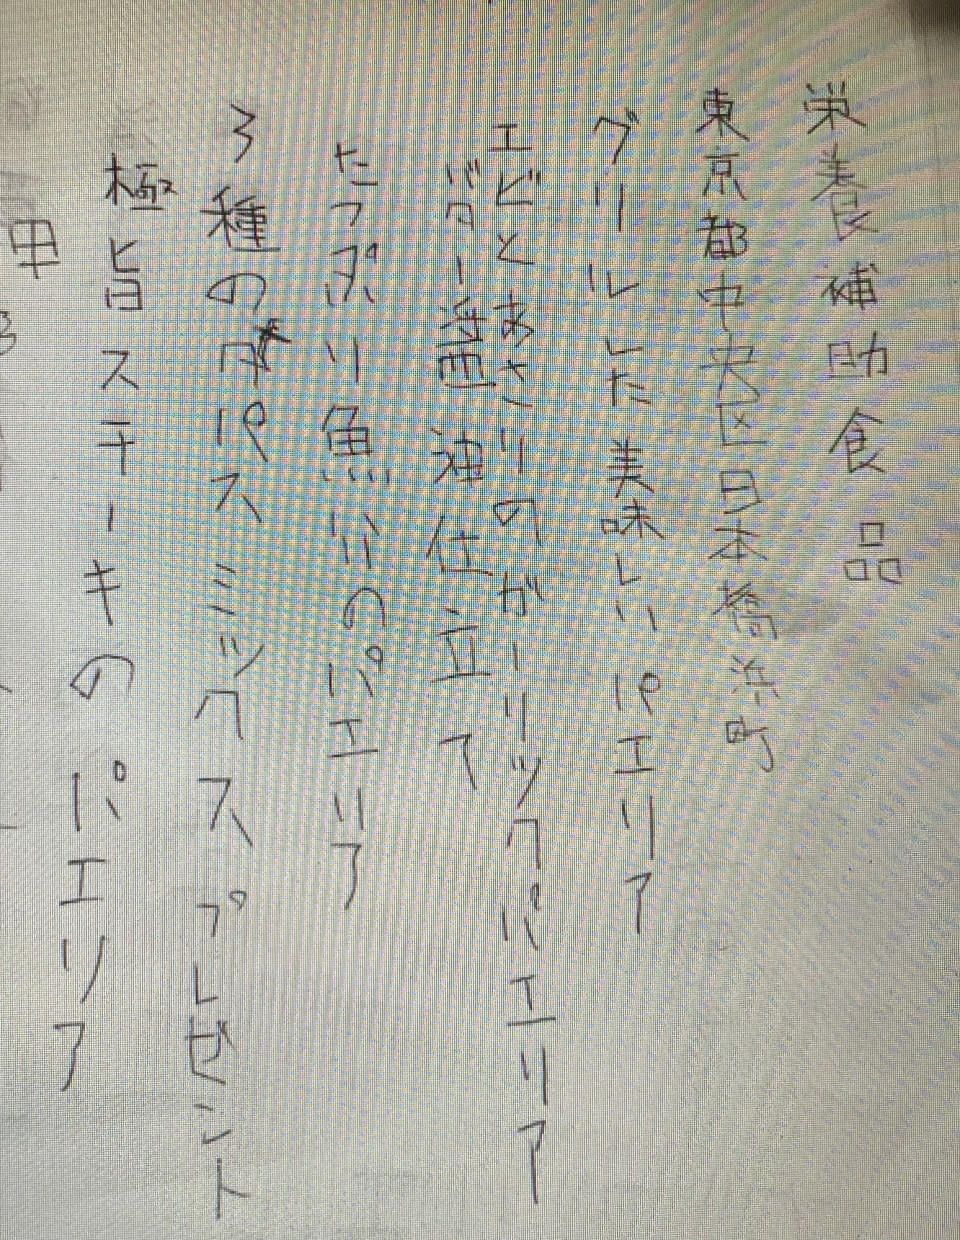 栄養補助食品
東京都中央区日本橋浜町
グリルした美味しいパエリア
エビとあさりのガーリックパエリア
バター醤油仕立て
たっぷり魚介のパエリア
3種のパスミックスプレゼント
極旨ステーキのパエリア
甲